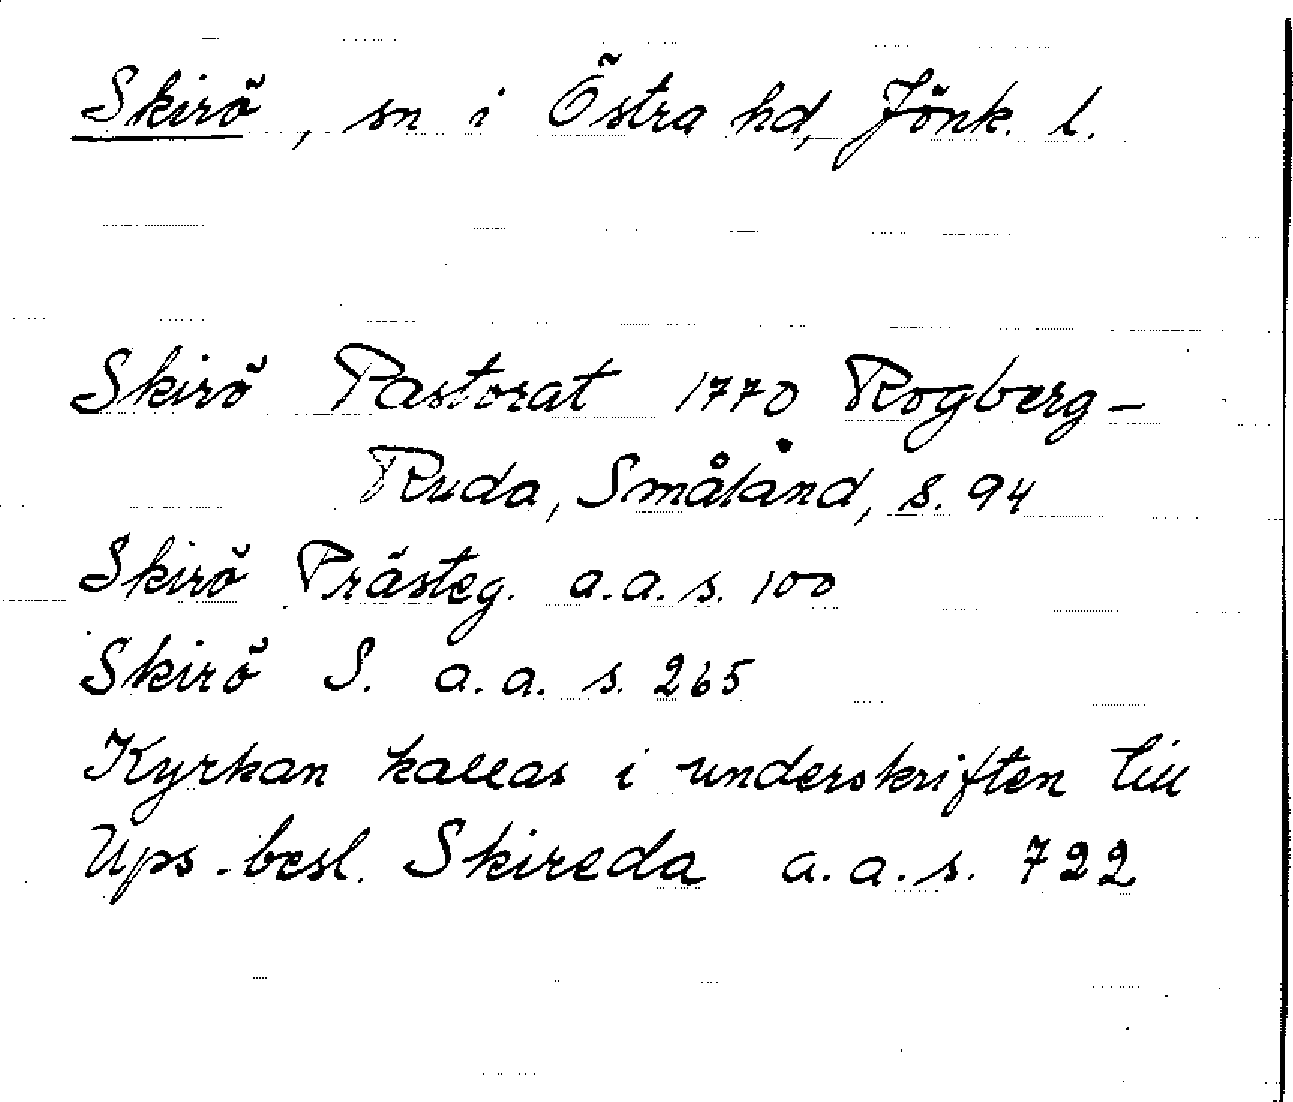 Skirö, sn i Östra hd, Jönk. l.
Skirö Pastorat 1770 Rogberg-
Ruda, Småland, s. 94
Skirö Prästeg. a.a. s. 100
Skirö S. a.a. s. 265
Kyrkan kallas i underskriften till
Ups.-besl. Skireda a.a.s. 722